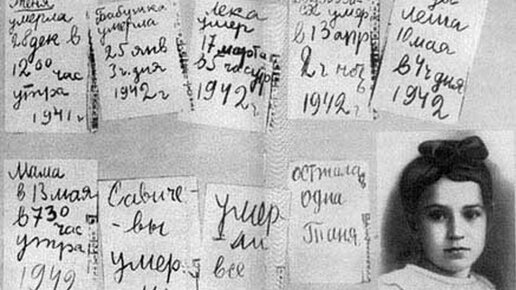 Женя
умерла
28 дек в
12 00 час
утра
1941 г
Бабушка
умерла
25 янв
3 ч. дня
1942 г
Лека
умер
17 марта
в 5 час утр
1942 г
умер
в 13 апр
2 ч ноч
1942 г
Леша
10 мая
в 4 ч дня
1942
Мама
в 13 мая
в 7 30
час
утра
1942
Савиче-
-вы
умер
умер-
ли
все
остала
одна
Таня